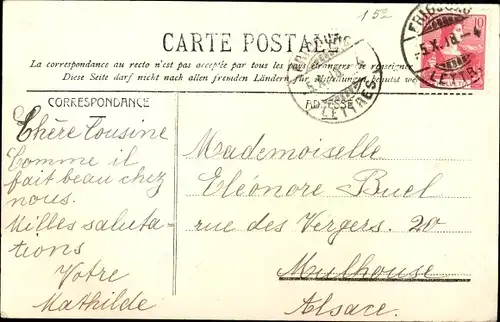 152
CARTE POSTALE
La correspondance au recto n'est pas acceptée par tous les pays étrangers. Se renseigner
Diese Seite darf nicht nach allen fremden Ländern für Mitteilungen benutzt we
CORRESPONDANCE
ADRESSE
FRIBOURG
LETTRES
10
FRIBOURG
5.X.
LETTR
Chère Cousine
Comme il
fait beau chez
nous.
Milles saluta-
tions
Votre
Mathilde
Mademoiselle
Eléonore Buel
rue des Vergers. 20
Mulhouse
Alsace.